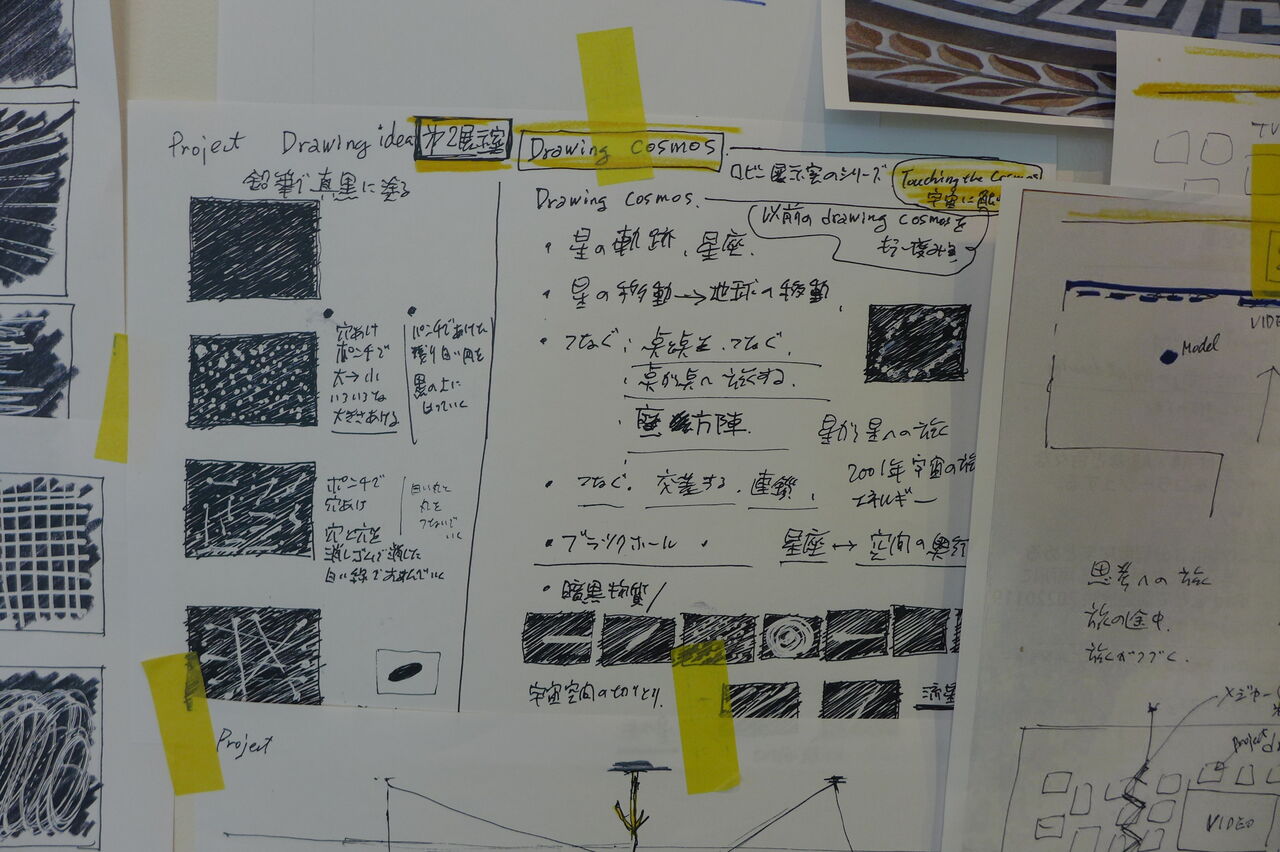 Project Drawing idea
第2展示室
Drawing cosmos
鉛筆で真黒に塗る
穴あけ
ポンチで
大→小
いろいろな
大きさあける
パンチであけた
残り白い円を
黒の上に
はっていく
ポンチで
穴あけ
穴と穴を
消しゴムで消した
白い線で
白い丸と
丸を
つないで
いく
ロビー展示室のシリーズ
Touching the Cosmos
宇宙に
Drawing cosmos.
以前のdrawing cosmosを
もう一度
・星の軌跡、星座.
・星の移動→地球の移動
・つなぐ: 点と点を つなぐ.
点から点へ 旅する.
魔方陣.
星から星への旅
2001年宇宙の旅
エネルギー
・つなぐ. 交差する. 連鎖.
・ブラックホール ・
星座 ↔ 空間の奥行
・暗黒物質/
宇宙空間の切りとり.
流星
Project
TV
VIDEO
Model
思考への旅
旅の途中.
旅がつづく.
メジャー
Project
VIDEO